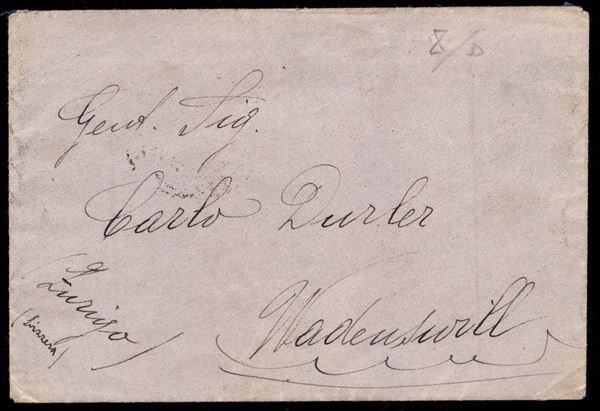 Gent. Sig.
Carlo Durler
Wadenswill
(Zurigo)
(Svizzera)